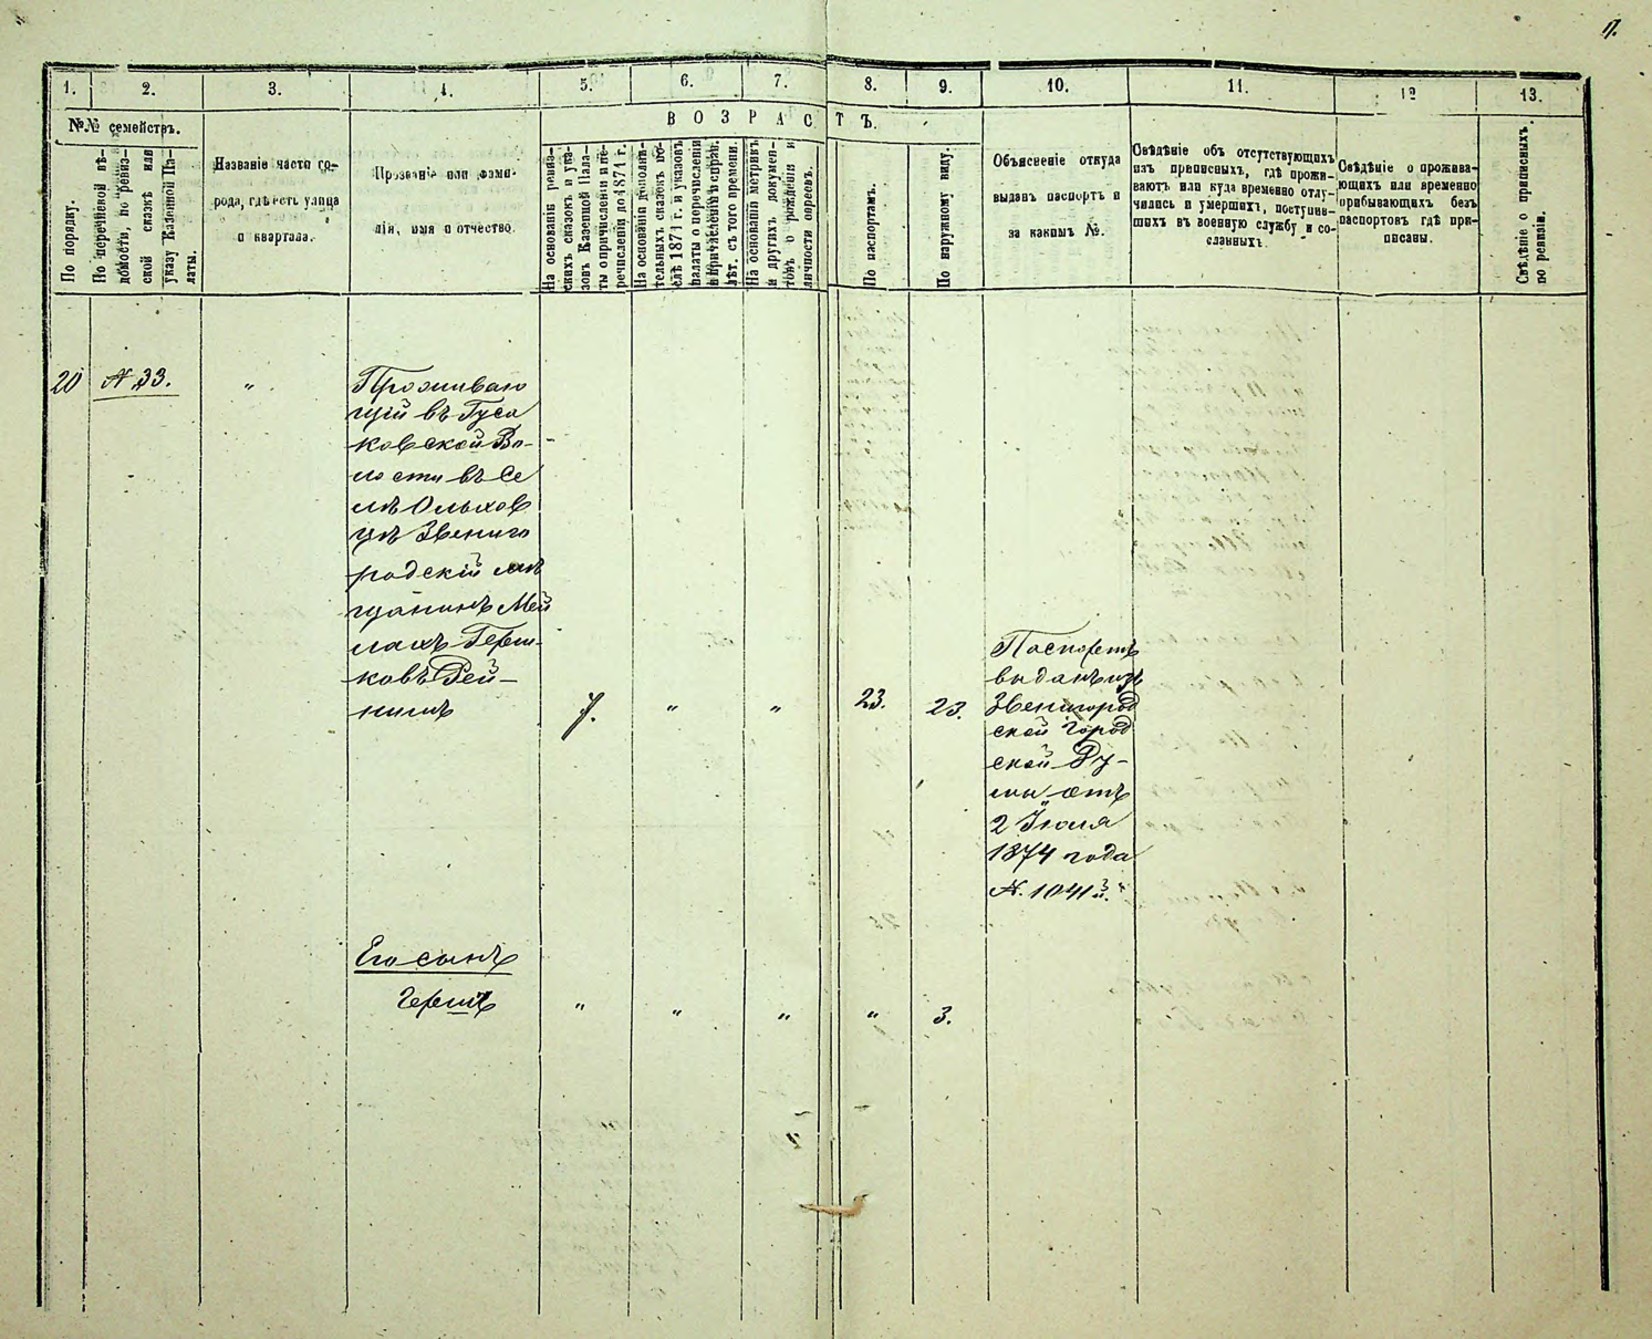 17.
1. 2. 3. 4. 5. 6. 7. 8. 9. 10. 11. 12 13.
№№ семействъ.
В О З Р А С Т Ъ.
По порядку.
По перечневой вѣ-
домости, по ревиз-
ской сказкѣ или
указу Казенной Па-
латы.
Названіе части го-
рода, гдѣ есть улица
и квартала.
Прозваніе или фами-
лія, имя и отчество.
На основаніи ревиз-
скихъ сказокъ и ука-
зовъ Казенной Пала-
ты о причисленіи и пе-
речисленіи до 1871 г.
На основаніи дополни-
тельныхъ сказокъ по-
слѣ 1871 г. и указовъ
палаты о перечисленіи
и причисленіи и справ.
лѣт. съ того времени.
На основаніи метрикъ
и другихъ докумен-
товъ о рожденіи и
личности евреевъ.
По паспортамъ.
По наружному виду.
Объясненіе откуда
выданъ паспортъ и
за какимъ №.
Свѣдѣніе объ отсутствующихъ
изъ приписныхъ, гдѣ прожи-
ваютъ или куда временно отлу-
чились и умершихъ, поступив-
шихъ въ военную службу и со-
сланныхъ.
Свѣдѣніе о прожива-
ющихъ или временно
прибывающихъ безъ
паспортовъ гдѣ при-
писаны.
Свѣдѣніе о приписныхъ
по ревизіи.
20 N 33. "
Проживаю
щій въ Гуса
ковской Во-
лости въ Се
лѣ Ольхов
цѣ Звениго
родскій мѣ
щанинъ Мей
лахъ Герш-
ковъ Рей-
нишъ 7. " " 23. 23.
Паспортъ
выданъ изъ
Звенигород
ской Город
ской Ду-
мы отъ
2 Іюля
1874 года
N. 1041й.
Его сынъ
Гершъ " " " " 3.